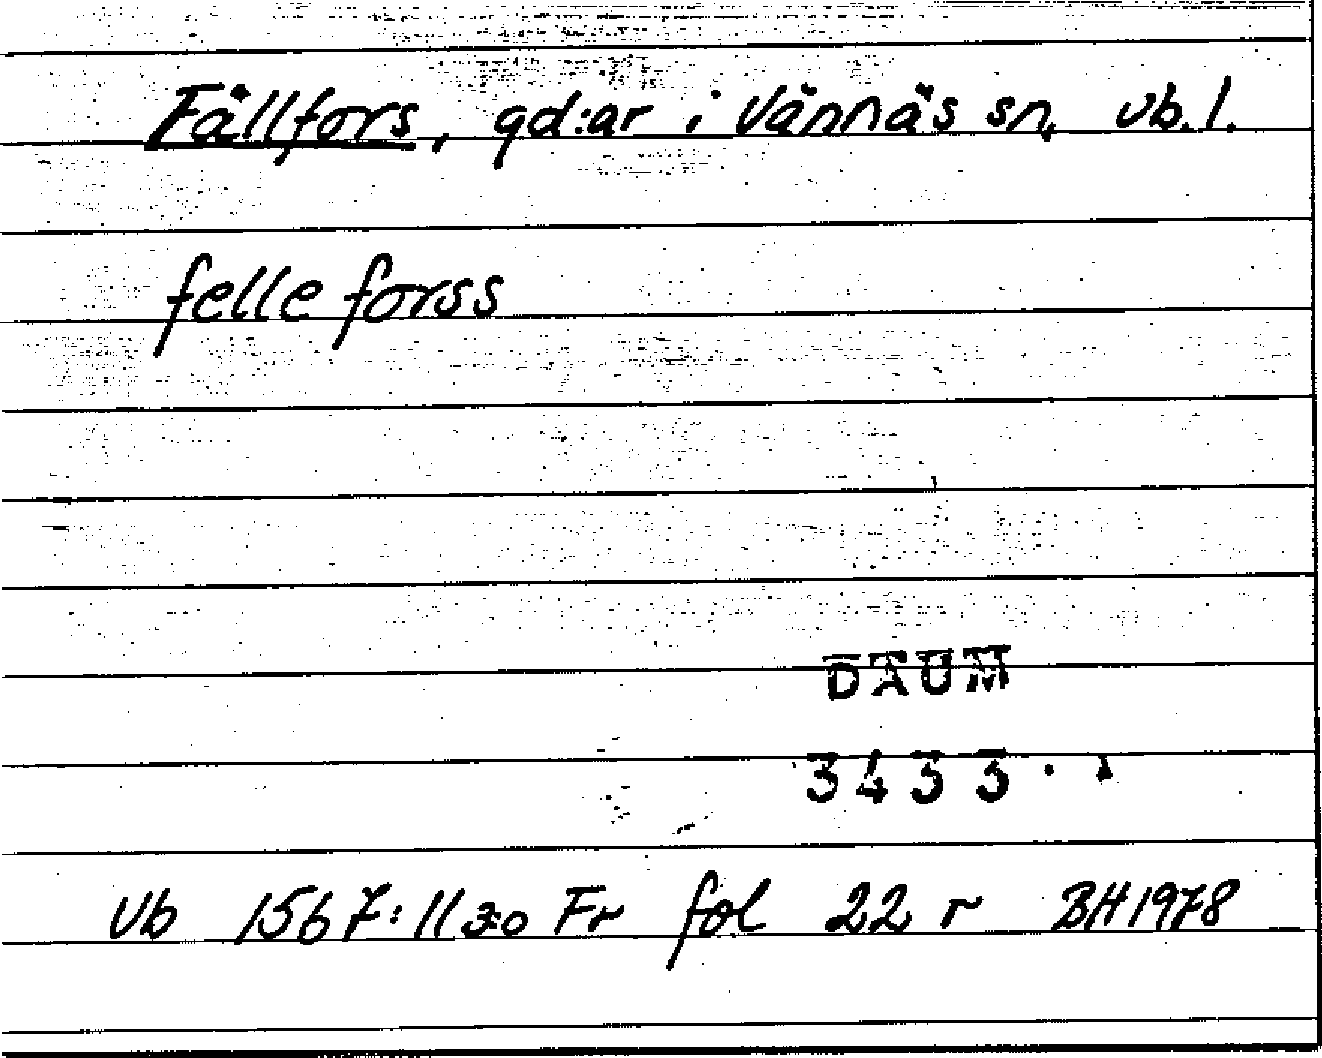 Fällfors, gd:ar i Vännäs sn, Vb. l.
felle forss
DAUM
3433
Vb 1567:11 3:0 Fr fol 22 r BH 1978